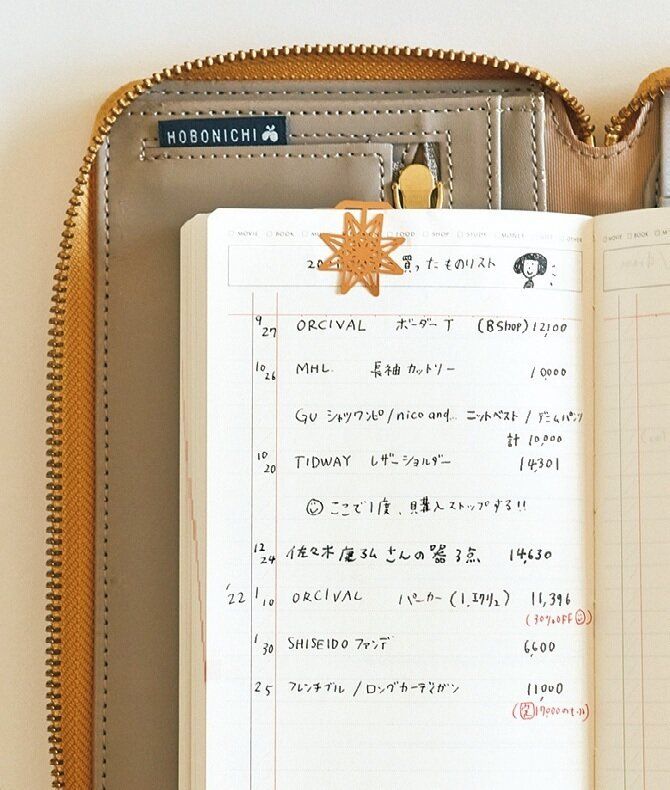 HOBONICHI
MOVIE BOOK FOOD SHOP STUDY MONEY OTHER
MOVIE BOOK
20 買ったものリスト
9/27 ORCIVAL ボーダーT (BShop) 12,100
10/26 MHL. 長袖カットソー 10,000
GU シャツワンピ/nico and... ニットベスト/デニムパンツ
計 10,000
10/20 TIDWAY レザーショルダー 14,301
ここで1度、購入ストップする!!
12/24 佐々木 さんの器 3点 14,630
'22 1/10 ORCIVAL パーカー (1.エクリュ) 11,396
(30%OFF)
1/30 SHISEIDO ファンデ 6,600
2 5 フレンチブル/ロングカーデマガン 11,000
(定 17,000のもの)